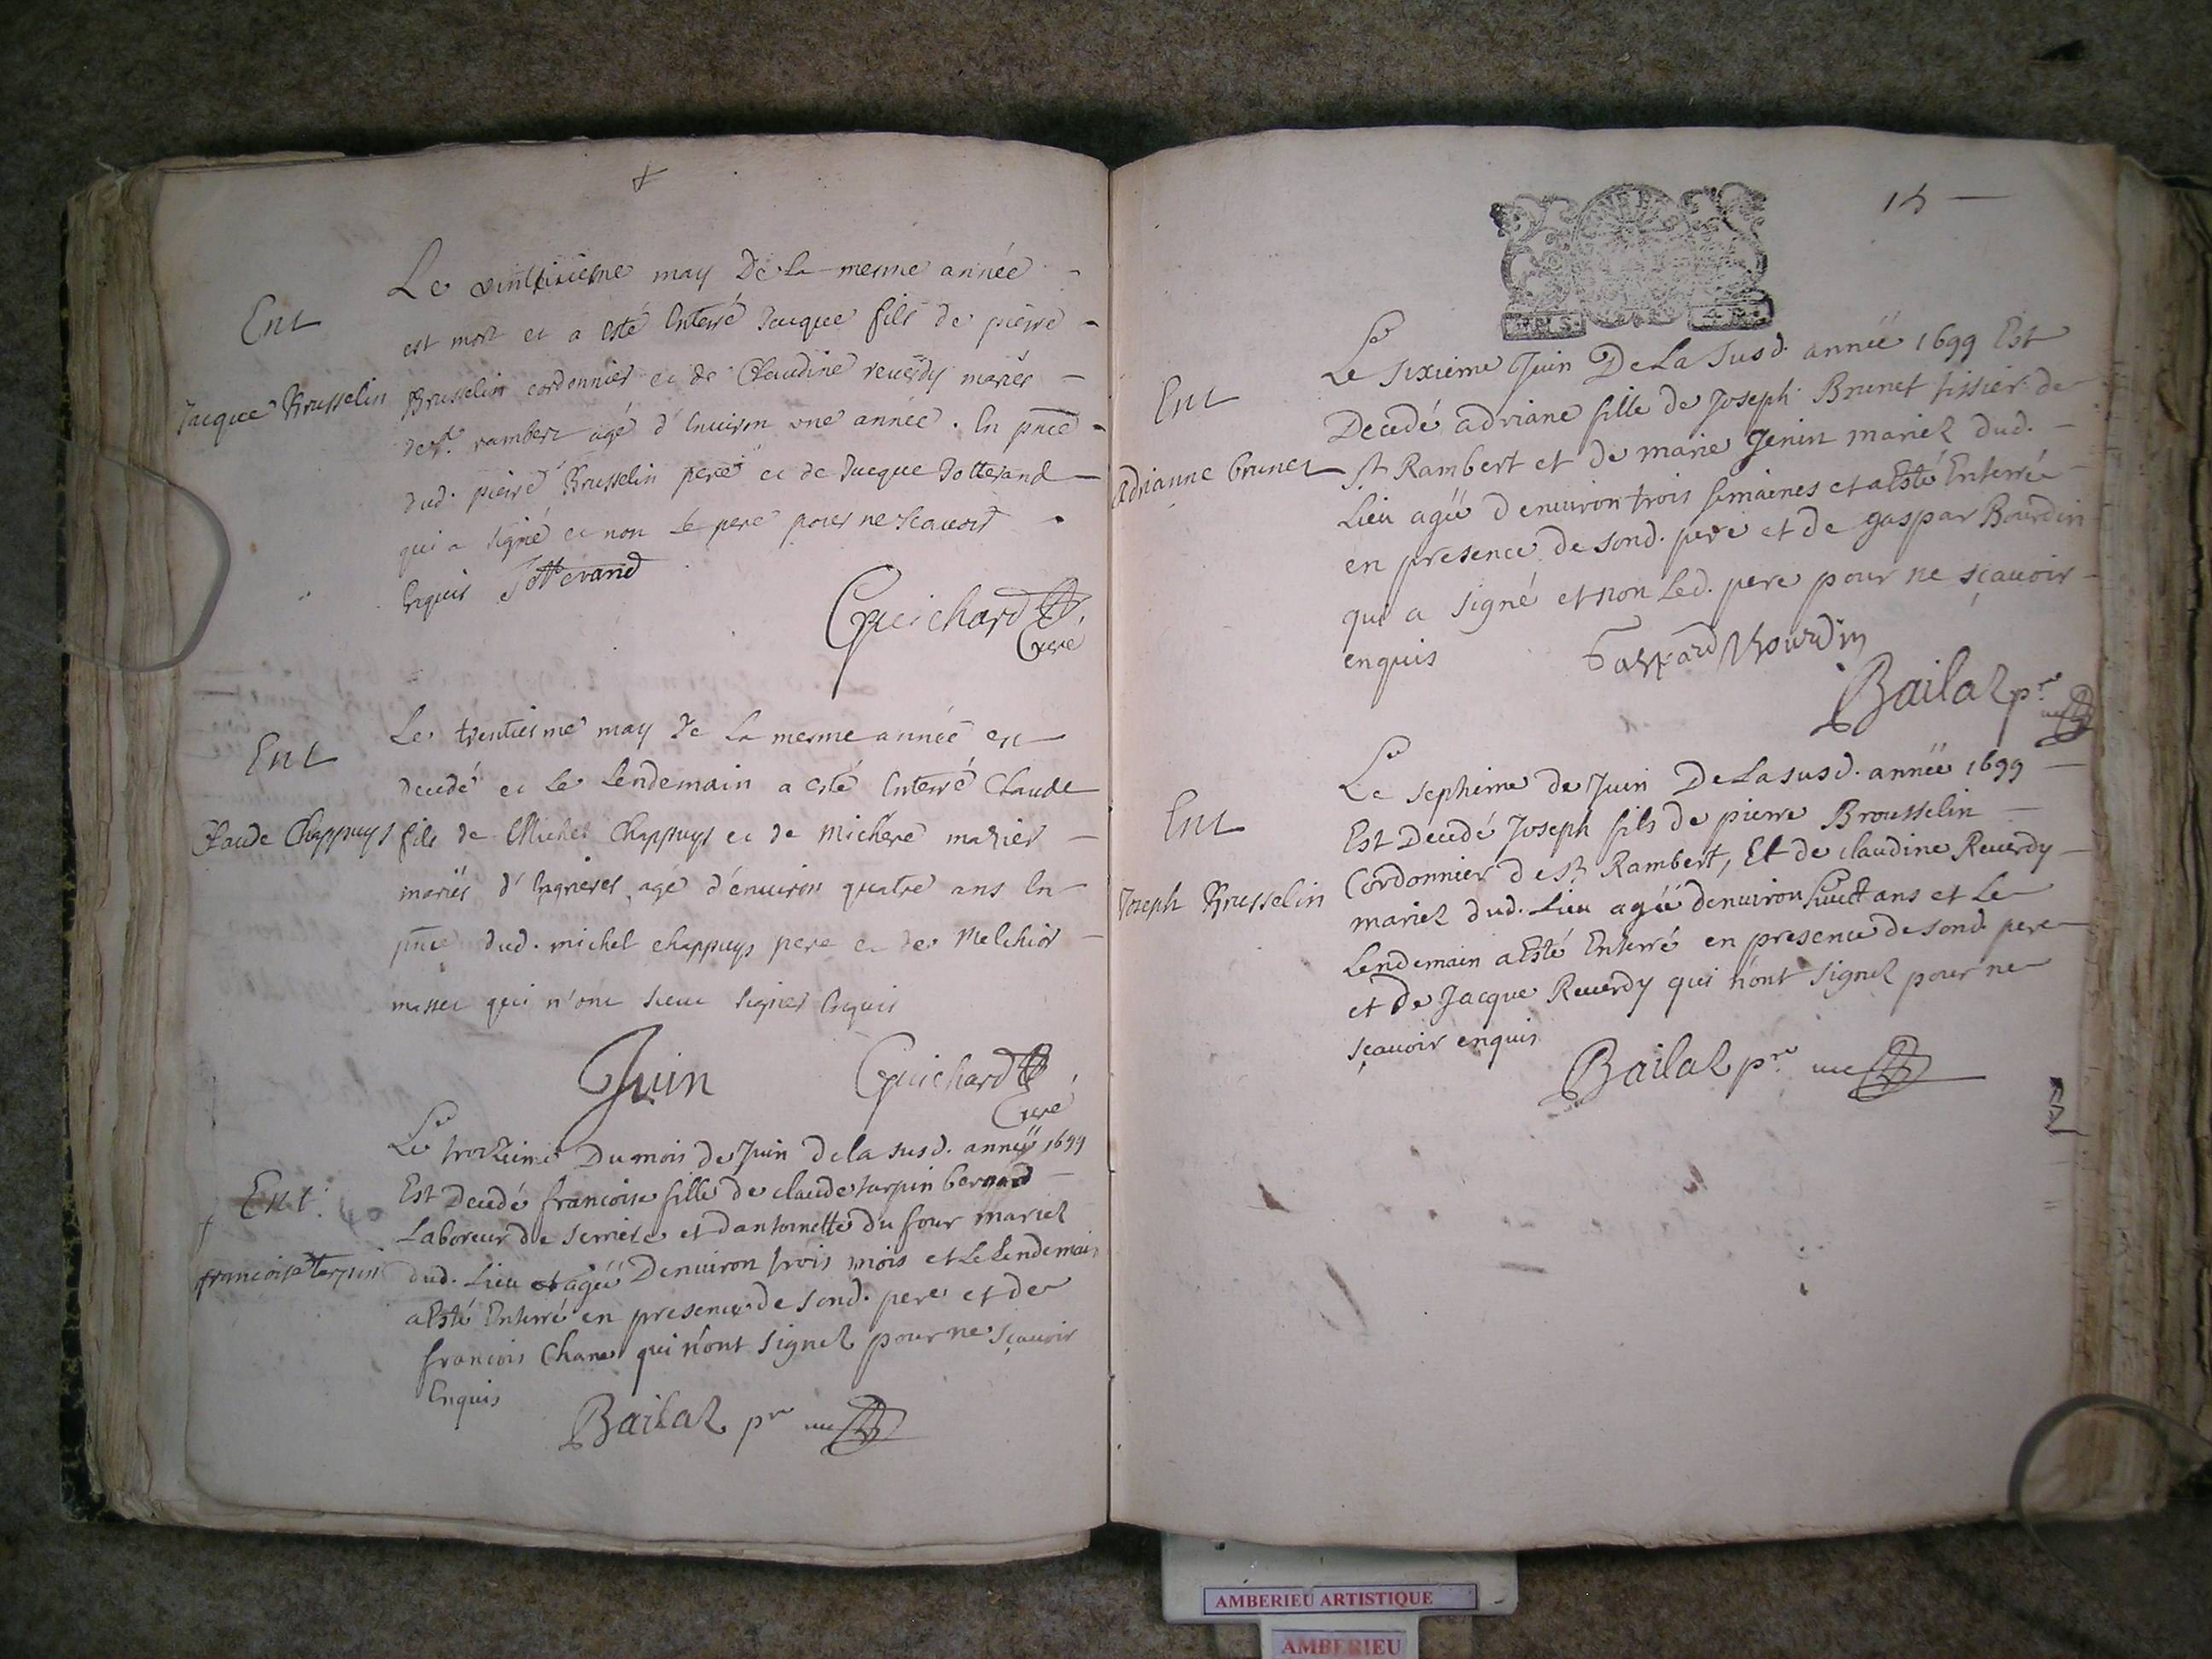 Ent
Jacque Brusselin
Le vintsixiesme may De la mesme année
est mort et a esté Enterré Jacque fils de pierre
Brusselin cordonnier et de Claudine reuerdy mariés
de st. rambert agé d'Enuiron une année. En pnce
dud. pierre Brusselin pere et de Jacque Jotterand
qui a signé et non le pere pour ne scauoir
Enquis Jotterand
Guichard
Curé
Ent
Claude Chappuys
Le trentiesme may de la mesme année est
decedé et le lendemain a esté Enterré Claude
fils de Michel Chappuys et de michere
mariés d' agé d'enuiron quatre ans En
pnce dud. michel chappuys pere et de Melchior
qui n'ont sceu signer Enquis
Juin
Guichard
Curé
Ent.
francoise tarpin
Le Du mois de Juin de la susd. année 1699
Est Decedé francoise fille de claude tarpin bernard
Laboreur de et dantoinette du four mariez
dud. Lieu agéé Denuiron trois mois et Le Lendemain
a Esté Enterré en presence de sond. pere et de
francois Chane qui n'ont signez pour ne sçauoir
Enquis
Bailaz pre
15
Ent
Adrianne brunet
Le sixieme Juin De La susd. année 1699 Est
Decedé adriane fille de Joseph Brunet tissier de
st Rambert et de marie Jenin mariez dud.
Lieu agéé denuiron trois semaines et a Esté Enterrée
en presence de sond. pere et de gaspar Bourdin
qui a signé et non Led. pere pour ne sçauoir
enquis
Gaspard Bourdin
Bailaz pre
Ent
Joseph Brusselin
Le septieme de Juin De La susd. année 1699
Est Decedé Joseph fils de pierre Brousselin
Cordonnier de st Rambert, Et de claudine Reuerdy
mariez dud. Lieu agéé denuiron huict ans et Le
Lendemain a Esté Enterré en presence de sond. pere
et De Jacque Reuerdy qui n'ont signez pour ne
sçauoir enquis
Bailaz pre
AMBERIEU ARTISTIQUE
AMBERIEU